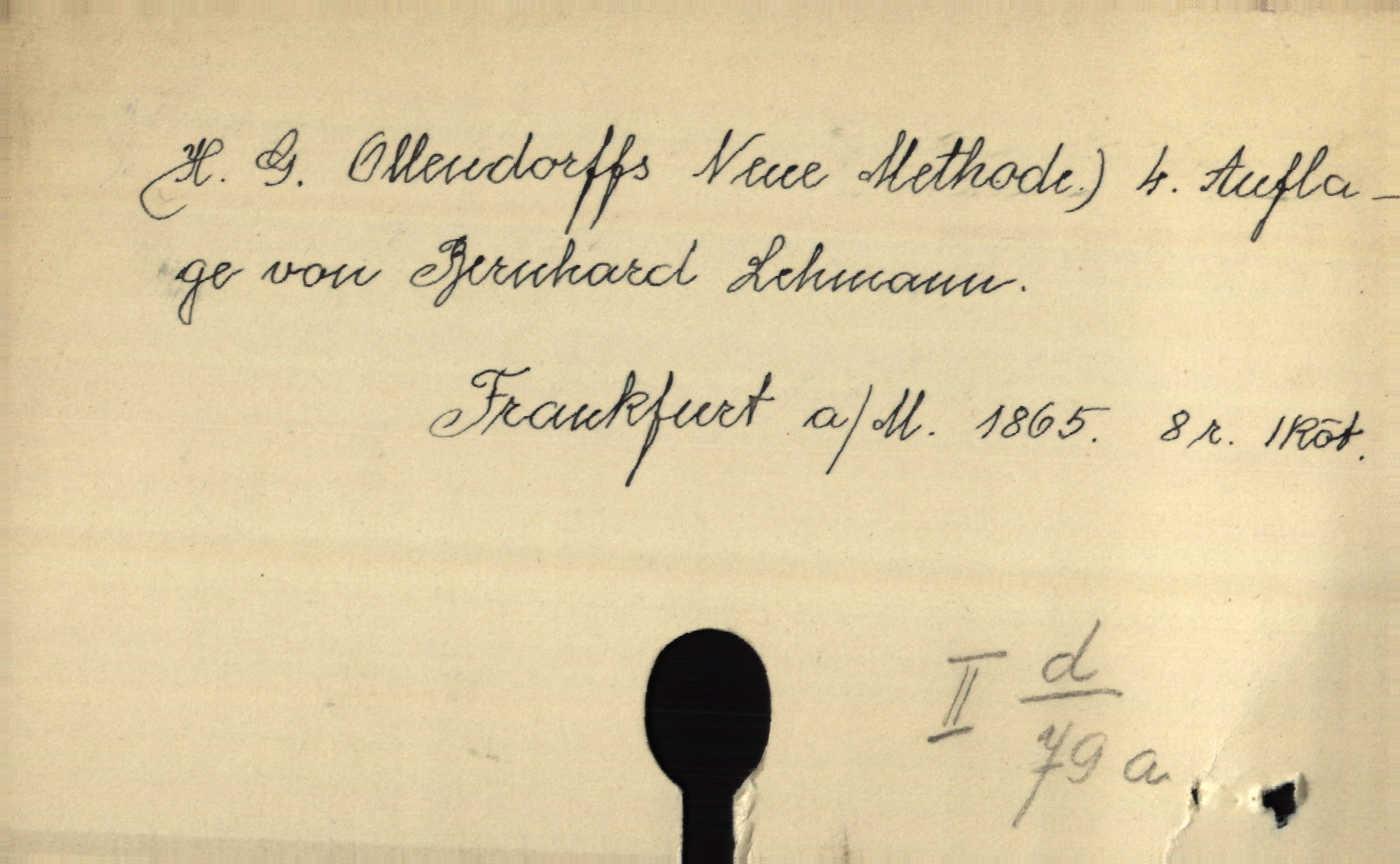 (H. G. Ollendorffs Neue Methode.) 4. Aufla-
ge von Bernhard Lehmann.
Frankfurt a/M. 1865. 8 r. 1 Köt.
II d
79 a